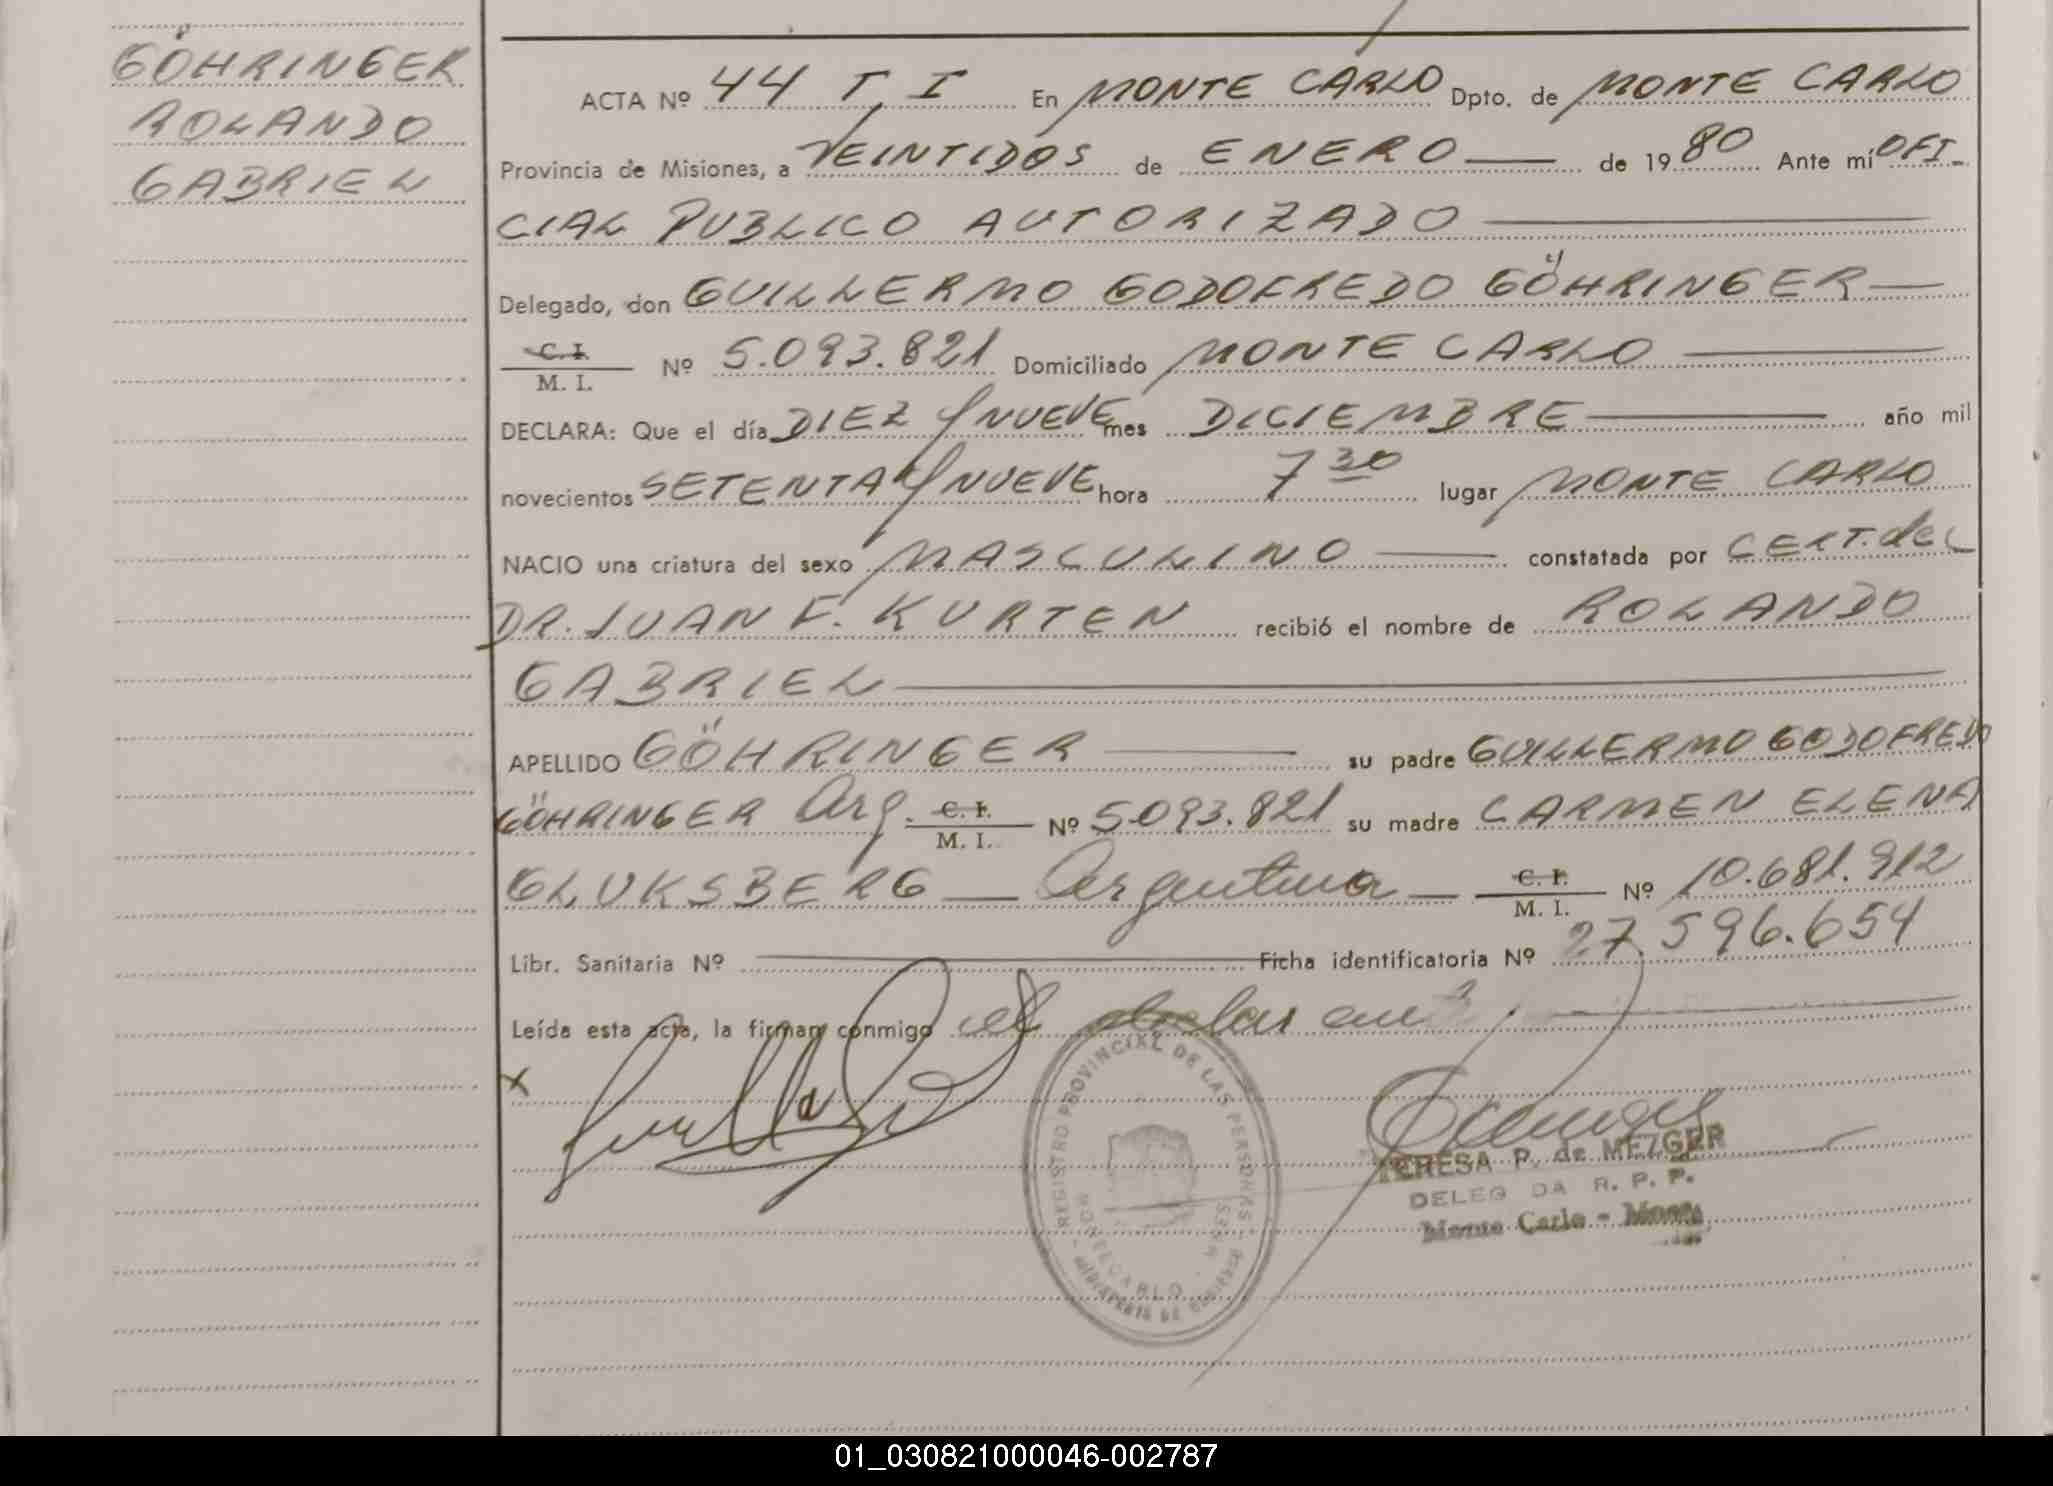 GÖHRINGER
ROLANDO
GABRIEL
ACTA Nº 44 T I En MONTE CARLO Dpto. de MONTE CARLO
Provincia de Misiones, a VEINTIDOS de ENERO de 1980 Ante mí OFI-
CIAL PUBLICO AUTORIZADO
Delegado, don GUILLERMO GODOFREDO GÖHRINGER
C. I. / M. I. Nº 5.093.821 Domiciliado MONTE CARLO
DECLARA: Que el día DIEZ Y NUEVE mes DICIEMBRE año mil
novecientos SETENTA Y NUEVE hora 7 30 lugar MONTE CARLO
NACIO una criatura del sexo MASCULINO constatada por CERT. del
DR. JUAN F. KURTEN recibió el nombre de ROLANDO
GABRIEL
APELLIDO GÖHRINGER su padre GUILLERMO GODOFREDO
GÖHRINGER Arg. C. I. / M. I. Nº 5.093.821 su madre CARMEN ELENA
GLUKSBERG Argentina C. I. / M. I. Nº 10.681.912
Libr. Sanitaria Nº Ficha identificatoria Nº 27.596.654
Leída esta acta, la firman conmigo el
REGISTRO PROVINCIAL DE LAS PERSONAS
TERESA P. de MEZGER
DELEG DA R. P. P.
Monte Carlo - Mnes
01_030821000046-002787